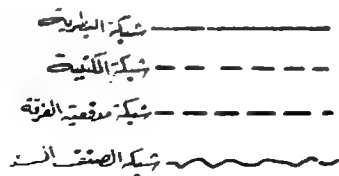 شبكة البطرية
شبكة الكتيبة
شبكة مدفعية الفرقة
شبكة الصنف